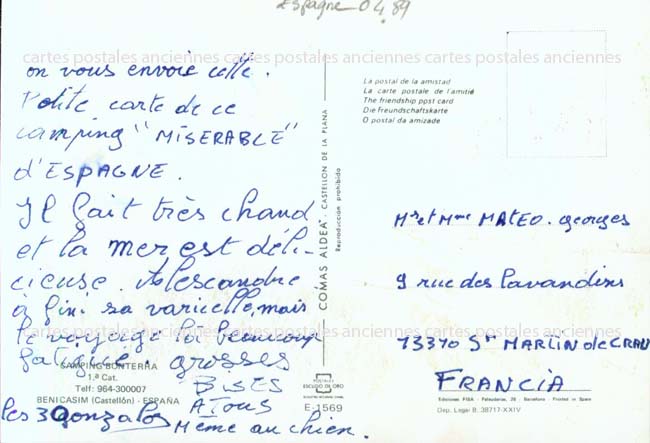 Espagne 04.89
cartes postales anciennes cartes postales anciennes cartes postales anciennes
on vous envoie cette.
Petite carte de ce
camping "MISERABLE"
d'ESPAGNE.
Il fait très chaud
et la mer est déli-
cieuse. Alescandre
à fini sa varicelle, mais
le voyage l'à beaucoup
fatigué. grosses
BISES
A TOUS
Même au chien.
les 3 Gonzalos
CAMPING BONTERRA
1.ª Cat.
Telf: 964-300007
BENICASIM (Castellón) - ESPAÑA
COMAS ALDEA - CASTELLON DE LA PLANA
Reproducción prohibida
POSTALES
ESCUDO DE ORO
E-1569
La postal de la amistad
La carte postale de l'amitié
The friendship ppst card
Die Freundschaftskarte
O postal da amizade
Mr et Mme MATEO. georges
9 rue des lavandins
cartes postales anciennes cartes postales anciennes cartes postales anciennes
13310 St MARTIN de CRAU
FRANCIA
Ediciones FISA - Palaudarias, 26 - Barcelona - Printed in Spain
Dep. Legal B. 38717-XXIV